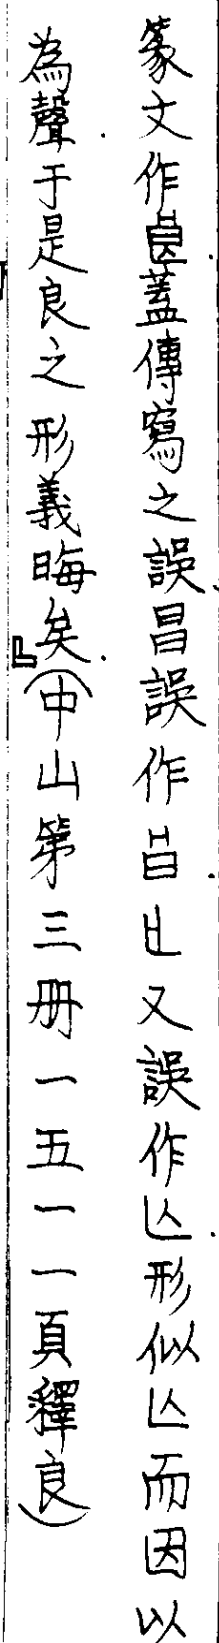 篆文作𥃩蓋傳寫之誤昌誤作㫐㐄又誤作亾形似亾而因以
為聲于是良之形義晦矣』(中山第三册一五一一頁釋良)